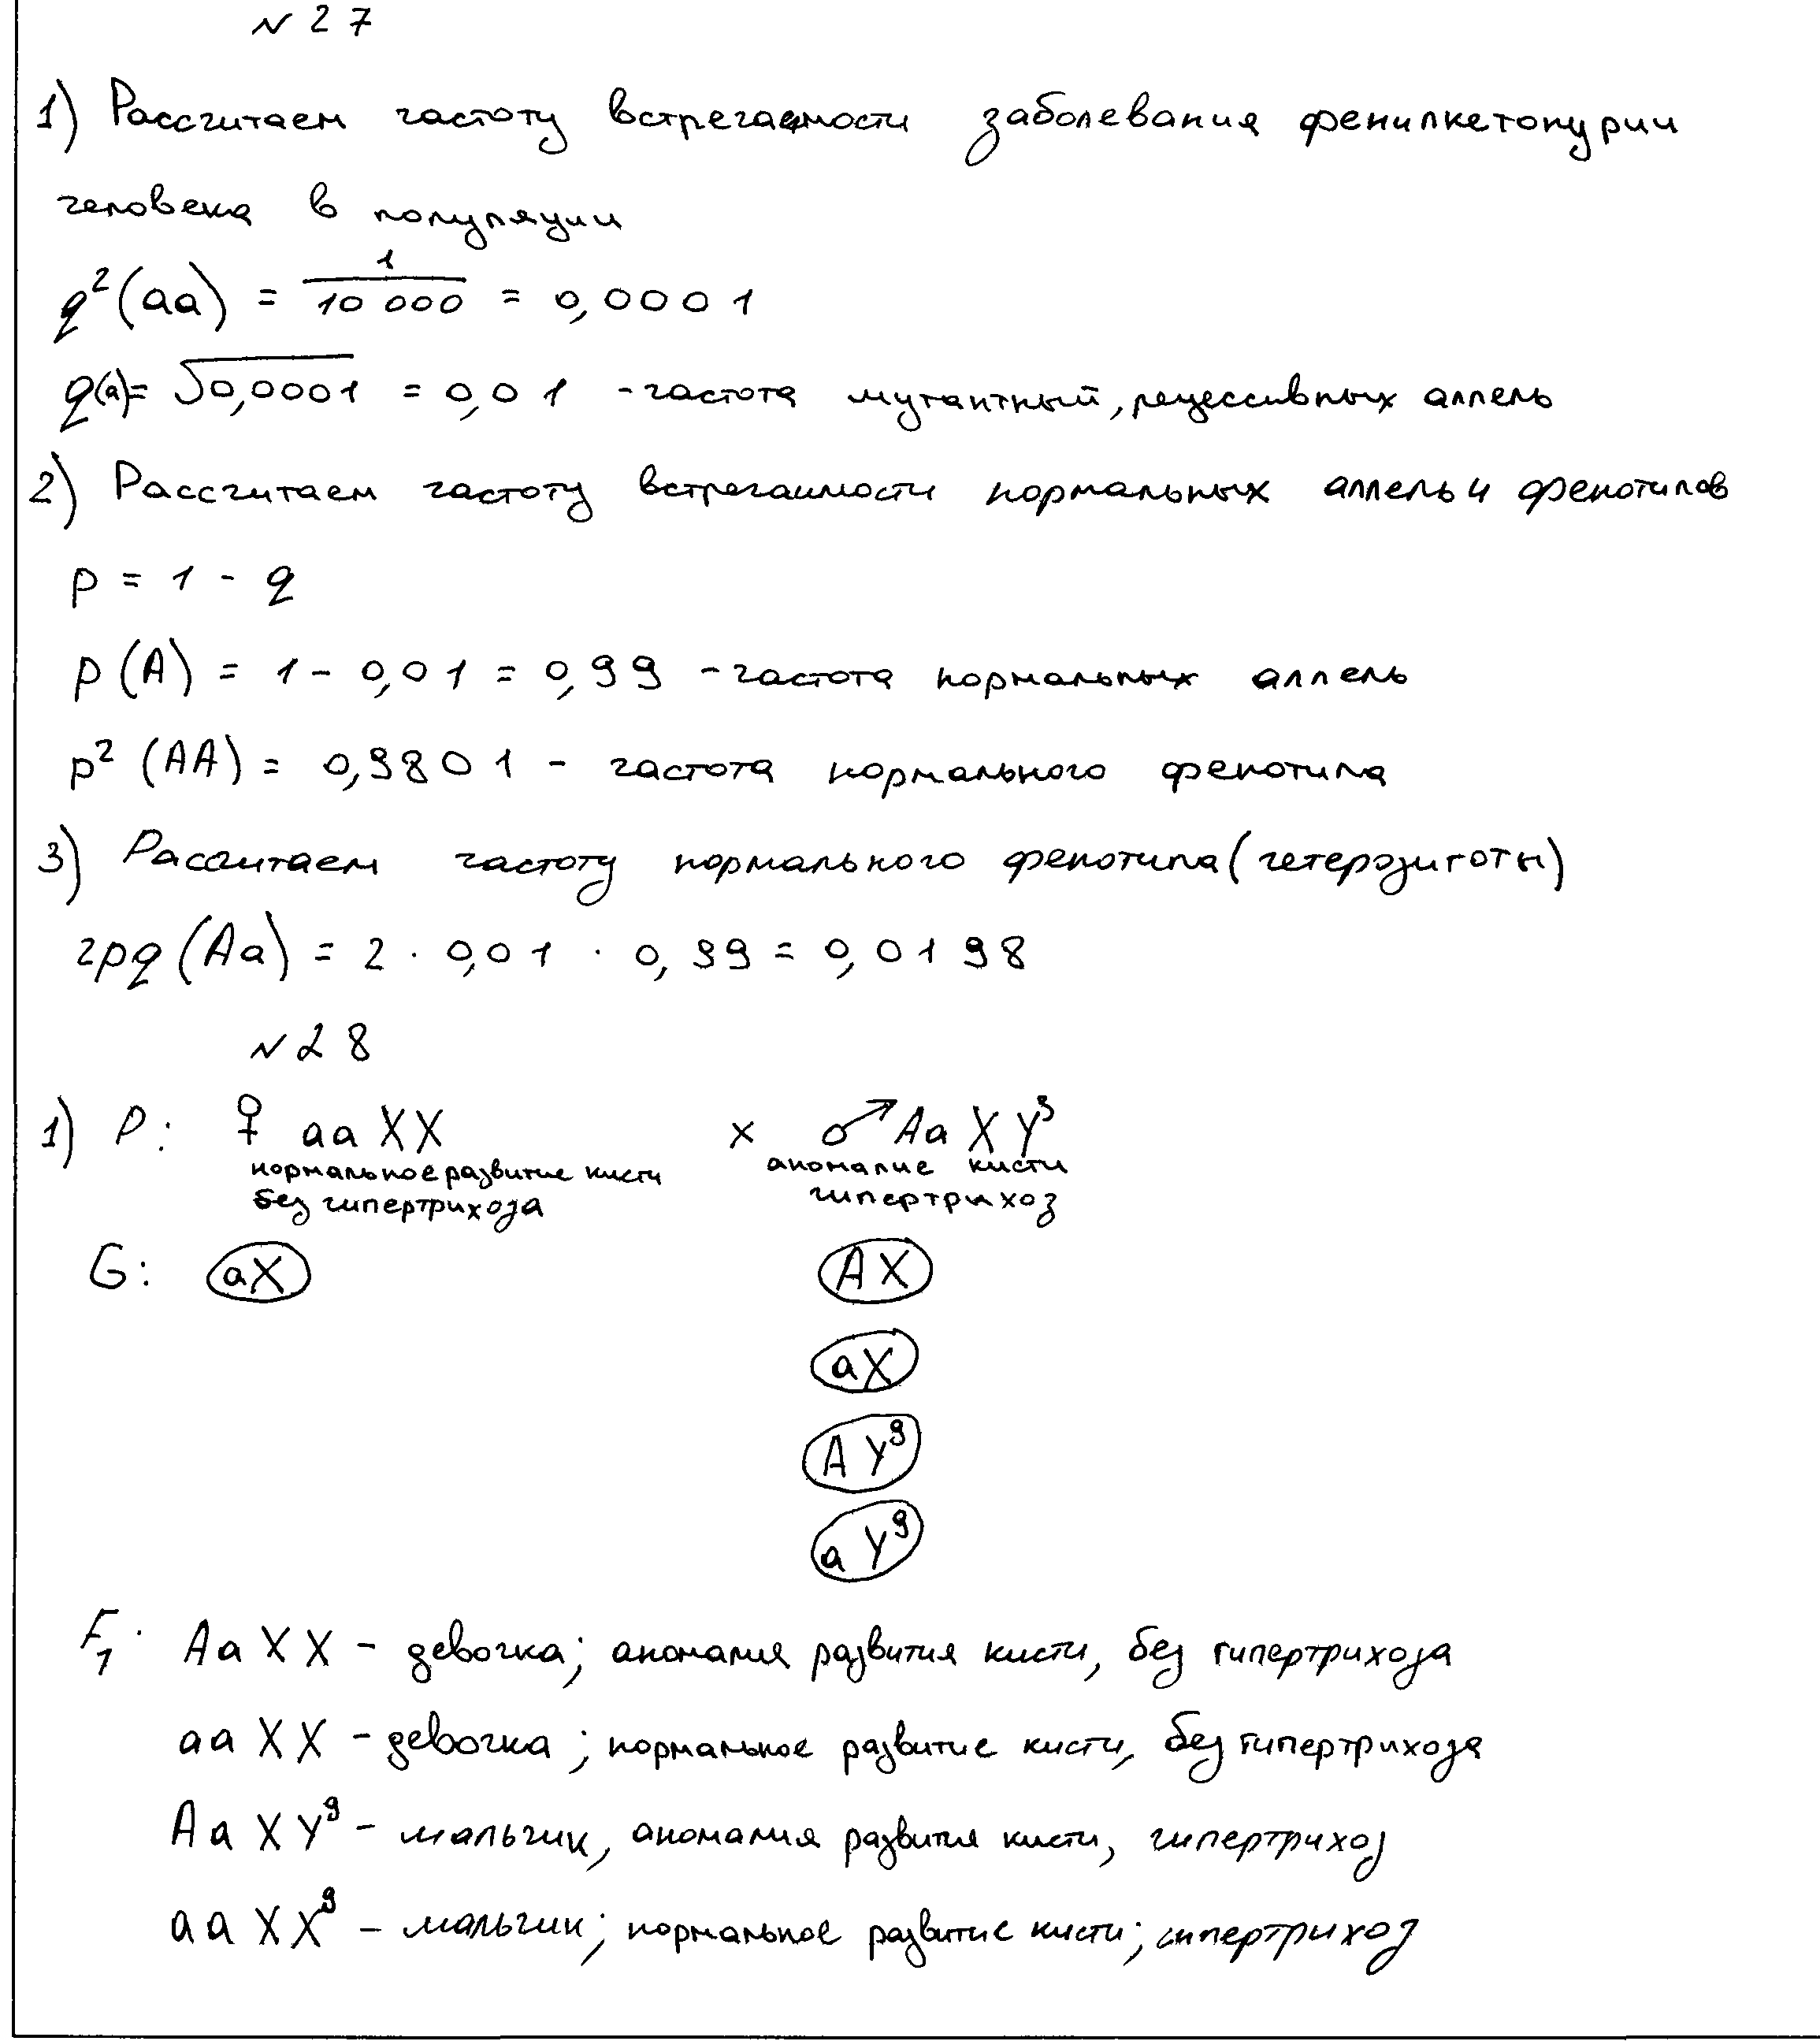 № 27
1) Рассчитаем частоту встречаемости заболевания фенилкетонурии
человека в популяции
q²(aa) = 1/10 000 = 0,0001
q(a)= √0,0001 = 0,01 - частота мутантный, рецессивных аллель
2) Рассчитаем частоту встречаимости нормальных аллель и фенотипов
p = 1 - q
p (A) = 1 - 0,01 = 0,99 - частота нормальных аллель
p² (AA) = 0,9801 - частота нормального фенотипа
3) Рассчитаем частоту нормального фенотипа (гетерозиготы)
2pq (Aa) = 2 · 0,01 · 0,99 = 0,0198
№ 28
1) P: ♀ aa XX × ♂ Aa X Yᵍ
нормальное развитие кисти аномалие кисти
без гипертрихоза гипертрихоз
G: aX AX
aX
A Yᵍ
a Yᵍ
F₁: Aa XX - девочка; аномалия развития кисти, без гипертрихоза
aa XX - девочка; нормальное развитие кисти, без гипертрихоза
Aa XYᵍ - мальчик, аномалия развития кисти, гипертрихоз
aa XXᵍ - мальчик; нормальное развитие кисти; гипертрихоз